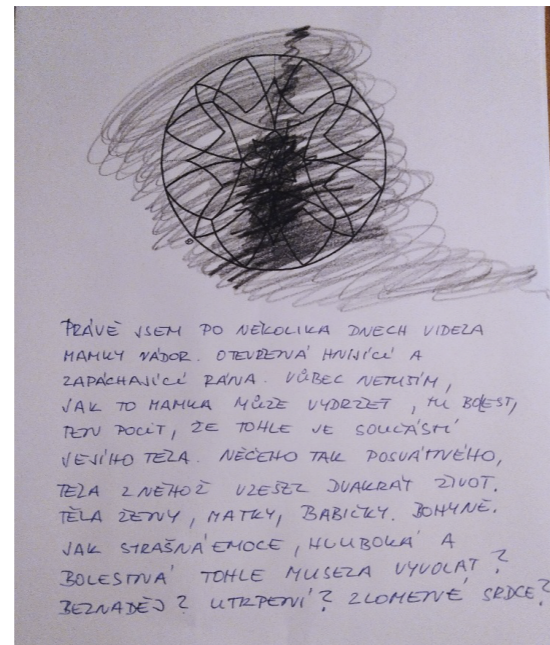 PRÁVĚ JSEM PO NĚKOLIKA DNECH VIDĚLA
MAMKY NÁDOR. OTEVŘENÁ HNIJÍCÍ A
ZAPÁCHAJÍCÍ RÁNA. VŮBEC NETUŠÍM,
JAK TO MAMKA MŮŽE VYDRŽET, TU BOLEST,
TEN POCIT, ŽE TOHLE JE SOUČÁSTÍ
JEJÍHO TĚLA. NĚČEHO TAK POSVÁTNÉHO,
TĚLA Z NĚHOŽ VZEŠEL DVAKRÁT ŽIVOT.
TĚLA ŽENY, MATKY, BABIČKY. BOHYNĚ.
JAK STRAŠNÁ EMOCE, HLUBOKÁ A
BOLESTNÁ TOHLE MUSELA VYVOLAT?
BEZNADĚJ? UTRPENÍ? ZLOMENÉ SRDCE?